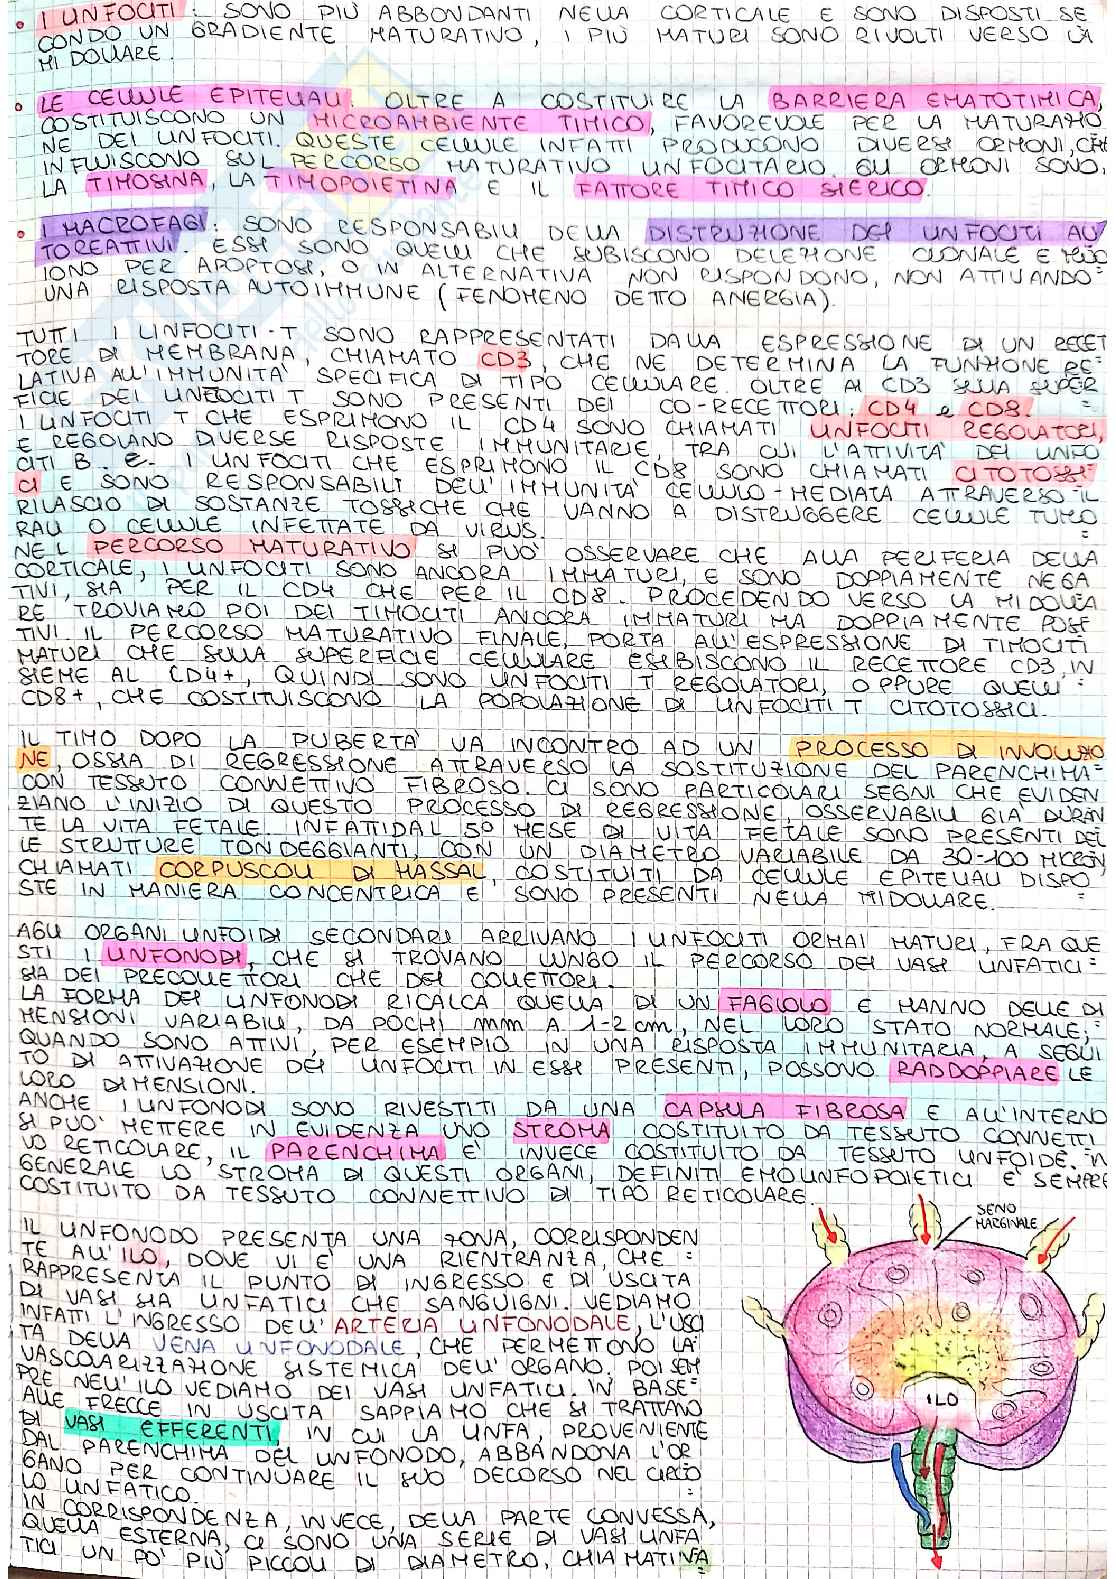 • I LINFOCITI: SONO PIÙ ABBONDANTI NELLA CORTICALE E SONO DISPOSTI SE
CONDO UN GRADIENTE MATURATIVO, I PIÙ MATURI SONO RIVOLTI VERSO LA
MIDOLLARE.
• LE CELLULE EPITELIALI. OLTRE A COSTITUIRE LA BARRIERA EMATOTIMICA,
COSTITUISCONO UN MICROAMBIENTE TIMICO, FAVOREVOLE PER LA MATURAZIO
NE DEI LINFOCITI. QUESTE CELLULE INFATTI PRODUCONO DIVERSI ORMONI, CHE
INFLUISCONO SUL PERCORSO MATURATIVO LINFOCITARIO. GLI ORMONI SONO:
LA TIMOSINA, LA TIMOPOIETINA E IL FATTORE TIMICO SIERICO.
• I MACROFAGI: SONO RESPONSABILI DELLA DISTRUZIONE DEI LINFOCITI AU
TOREATTIVI. ESSI SONO QUELLI CHE SUBISCONO DELEZIONE CLONALE E MUO
IONO PER APOPTOSI, O IN ALTERNATIVA NON RISPONDONO, NON ATTIVANDO =
UNA RISPOSTA AUTOIMMUNE (FENOMENO DETTO ANERGIA).
TUTTI I LINFOCITI-T SONO RAPPRESENTATI DALLA ESPRESSIONE DI UN RECET
TORE DI MEMBRANA, CHIAMATO CD3, CHE NE DETERMINA LA FUNZIONE RE =
LATIVA ALL'IMMUNITÀ SPECIFICA DI TIPO CELLULARE. OLTRE AL CD3 SULLA SUPER
FICIE DEI LINFOCITI T SONO PRESENTI DEI CO-RECETTORI: CD4 e CD8. =
I LINFOCITI T CHE ESPRIMONO IL CD4 SONO CHIAMATI LINFOCITI REGOLATORI,
E REGOLANO DIVERSE RISPOSTE IMMUNITARIE, TRA CUI L'ATTIVITÀ DEI LINFO
CITI B. e I LINFOCITI CHE ESPRIMONO IL CD8 SONO CHIAMATI CITOTOSSI =
CI E SONO RESPONSABILI DELL'IMMUNITÀ CELLULO-MEDIATA ATTRAVERSO IL
RILASCIO DI SOSTANZE TOSSICHE CHE VANNO A DISTRUGGERE CELLULE TUMO
RALI O CELLULE INFETTATE DA VIRUS. =
NEL PERCORSO MATURATIVO SI PUÒ OSSERVARE CHE ALLA PERIFERIA DELLA
CORTICALE, I LINFOCITI SONO ANCORA IMMATURI, E SONO DOPPIAMENTE NEGA
TIVI, SIA PER IL CD4 CHE PER IL CD8. PROCEDENDO VERSO LA MIDOLLA
RE TROVIAMO POI DEI TIMOCITI ANCORA IMMATURI MA DOPPIAMENTE POSI
TIVI. IL PERCORSO MATURATIVO FINALE, PORTA ALL'ESPRESSIONE DI TIMOCITI
MATURI CHE SULLA SUPERFICIE CELLULARE ESIBISCONO IL RECETTORE CD3, IN
SIEME AL CD4+, QUINDI SONO LINFOCITI T REGOLATORI, OPPURE QUELLI =
CD8+, CHE COSTITUISCONO LA POPOLAZIONE DI LINFOCITI T CITOTOSSICI.
IL TIMO DOPO LA PUBERTÀ VA INCONTRO AD UN PROCESSO DI INVOLUZIO
NE, OSSIA DI REGRESSIONE ATTRAVERSO LA SOSTITUZIONE DEL PARENCHIMA =
CON TESSUTO CONNETTIVO FIBROSO. CI SONO PARTICOLARI SEGNI CHE EVIDEN
ZIANO L'INIZIO DI QUESTO PROCESSO DI REGRESSIONE, OSSERVABILI GIÀ DURAN
TE LA VITA FETALE. INFATTI DAL 5° MESE DI VITA FETALE SONO PRESENTI DEL
LE STRUTTURE TONDEGGIANTI, CON UN DIAMETRO VARIABILE DA 30-100 MICRON
CHIAMATI CORPUSCOLI DI HASSAL, COSTITUITI DA CELLULE EPITELIALI DISPO
STE IN MANIERA CONCENTRICA E SONO PRESENTI NELLA MIDOLLARE. =
AGLI ORGANI LINFOIDI SECONDARI ARRIVANO I LINFOCITI ORMAI MATURI, FRA QUE
STI I LINFONODI, CHE SI TROVANO LUNGO IL PERCORSO DEI VASI LINFATICI =
SIA DEI PRECOLLETTORI CHE DEI COLLETTORI.
LA FORMA DEI LINFONODI RICALCA QUELLA DI UN FAGIOLO E HANNO DELLE DI
MENSIONI VARIABILI, DA POCHI mm A 1-2 cm, NEL LORO STATO NORMALE, =
QUANDO SONO ATTIVI, PER ESEMPIO IN UNA RISPOSTA IMMUNITARIA, A SEGUI
TO DI ATTIVAZIONE DEI LINFOCITI IN ESSI PRESENTI, POSSONO RADDOPPIARE LE
LORO DIMENSIONI.
ANCHE I LINFONODI SONO RIVESTITI DA UNA CAPSULA FIBROSA E ALL'INTERNO
SI PUÒ METTERE IN EVIDENZA UNO STROMA COSTITUITO DA TESSUTO CONNETTI
VO RETICOLARE, IL PARENCHIMA È INVECE COSTITUITO DA TESSUTO LINFOIDE. IN
GENERALE LO STROMA DI QUESTI ORGANI, DEFINITI EMOLINFOPOIETICI È SEMPRE
COSTITUITO DA TESSUTO CONNETTIVO DI TIPO RETICOLARE.
IL LINFONODO PRESENTA UNA ZONA, CORRISPONDEN
TE ALL'ILO, DOVE VI È UNA RIENTRANZA, CHE =
RAPPRESENTA IL PUNTO DI INGRESSO E DI USCITA
DI VASI SIA LINFATICI CHE SANGUIGNI. VEDIAMO
INFATTI L'INGRESSO DELL'ARTERIA LINFONODALE, L'USCI
TA DELLA VENA LINFONODALE, CHE PERMETTONO LA
VASCOLARIZZAZIONE SISTEMICA DELL'ORGANO. POI SEM
PRE NELL'ILO VEDIAMO DEI VASI LINFATICI. IN BASE =
ALLE FRECCE IN USCITA SAPPIAMO CHE SI TRATTANO
DI VASI EFFERENTI, IN CUI LA LINFA, PROVENIENTE
DAL PARENCHIMA DEL LINFONODO, ABBANDONA L'OR
GANO PER CONTINUARE IL SUO DECORSO NEL CIRCO
LO LINFATICO. =
IN CORRISPONDENZA, INVECE, DELLA PARTE CONVESSA,
QUELLA ESTERNA, CI SONO UNA SERIE DI VASI LINFA
TICI UN PO' PIÙ PICCOLI DI DIAMETRO, CHIAMATI VA
SENO
MARGINALE
ILO